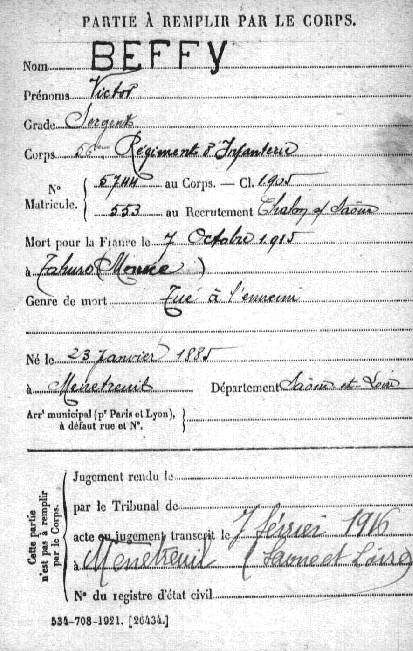 PARTIE À REMPLIR PAR LE CORPS.
Nom BEFFY
Prénoms Victor
Grade Sergent
Corps 56me Régiment d'Infanterie
N° Matricule. { 5744 au Corps. — Cl. 1905
553 au Recrutement Chalon s/ Saône
Mort pour la France le 7 Octobre 1915
à Tahure (Marne)
Genre de mort Tué à l'ennemi
Né le 23 Janvier 1885
à Menetreuil Département Saône et Loire
Arrt municipal (pr Paris et Lyon),
à défaut rue et N°. }
Cette partie n'est pas à remplir par le Corps. {
Jugement rendu le
par le Tribunal de
acte ou jugement transcrit le 7 février 1916
à Menetreuil (Saone et Loire)
N° du registre d'état civil
534-708-1921. [26434.]